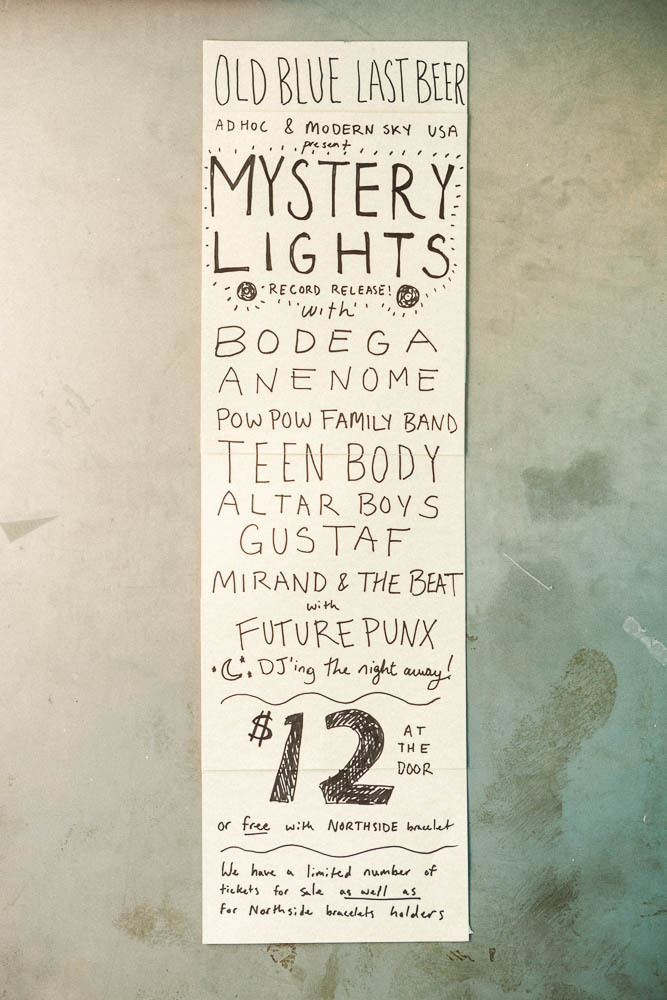 OLD BLUE LAST BEER
ADHOC & MODERN SKY USA
present
MYSTERY
LIGHTS
RECORD RELEASE!
"with"
BODEGA
ANENOME
POW POW FAMILY BAND
TEEN BODY
ALTAR BOYS
GUSTAF
MIRAND & THE BEAT
with
FUTURE PUNX
DJ'ing the night away!
$12 AT
THE
DOOR
or free with NORTHSIDE bracelet
We have a limited number of
tickets for sale as well as
for Northside bracelets holders